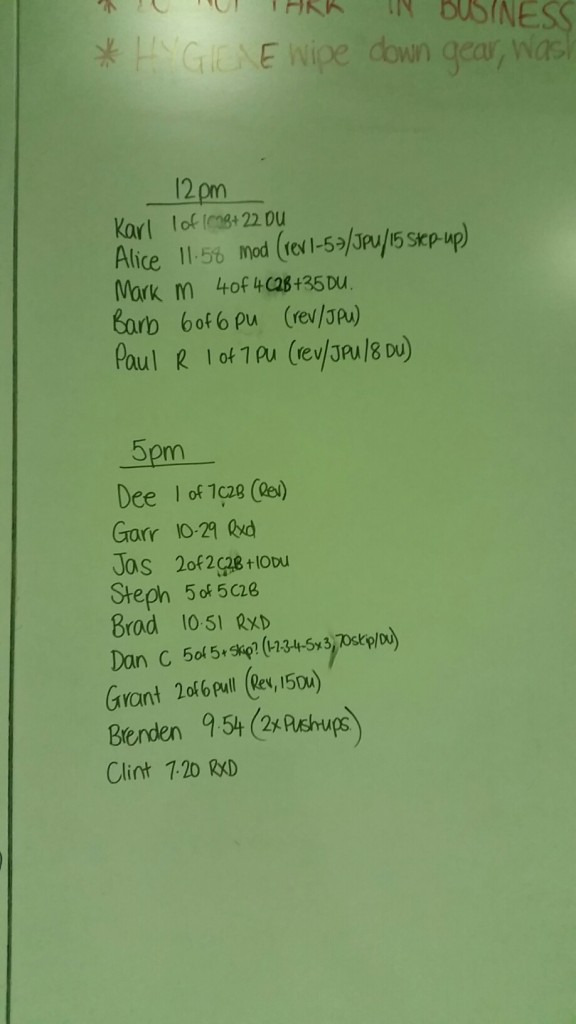 * TO NOT PARK IN BUSINESS
* HYGIENE wipe down gear, wash
12pm
Karl 1 of 1 C2B+22 DU
Alice 11.58 mod (rev 1-5→/JPU/15 step-up)
Mark m 4 of 4 C2B+35 DU.
Barb 6 of 6 PU (rev/JPU)
Paul R 1 of 7 PU (rev/JPU/8 DU)
5pm
Dee 1 of 7 C2B (Rev)
Garr 10.29 Rxd
Jas 2 of 2 C2B+10DU
Steph 5 of 5 C2B
Brad 10.51 RXD
Dan C 5 of 5+ skip? (1-2-3-4-5x3, 70 skip/DU)
Grant 2 of 6 pull (Rev, 15DU)
Brenden 9.54 (2x Pushups)
Clint 7.20 RXD